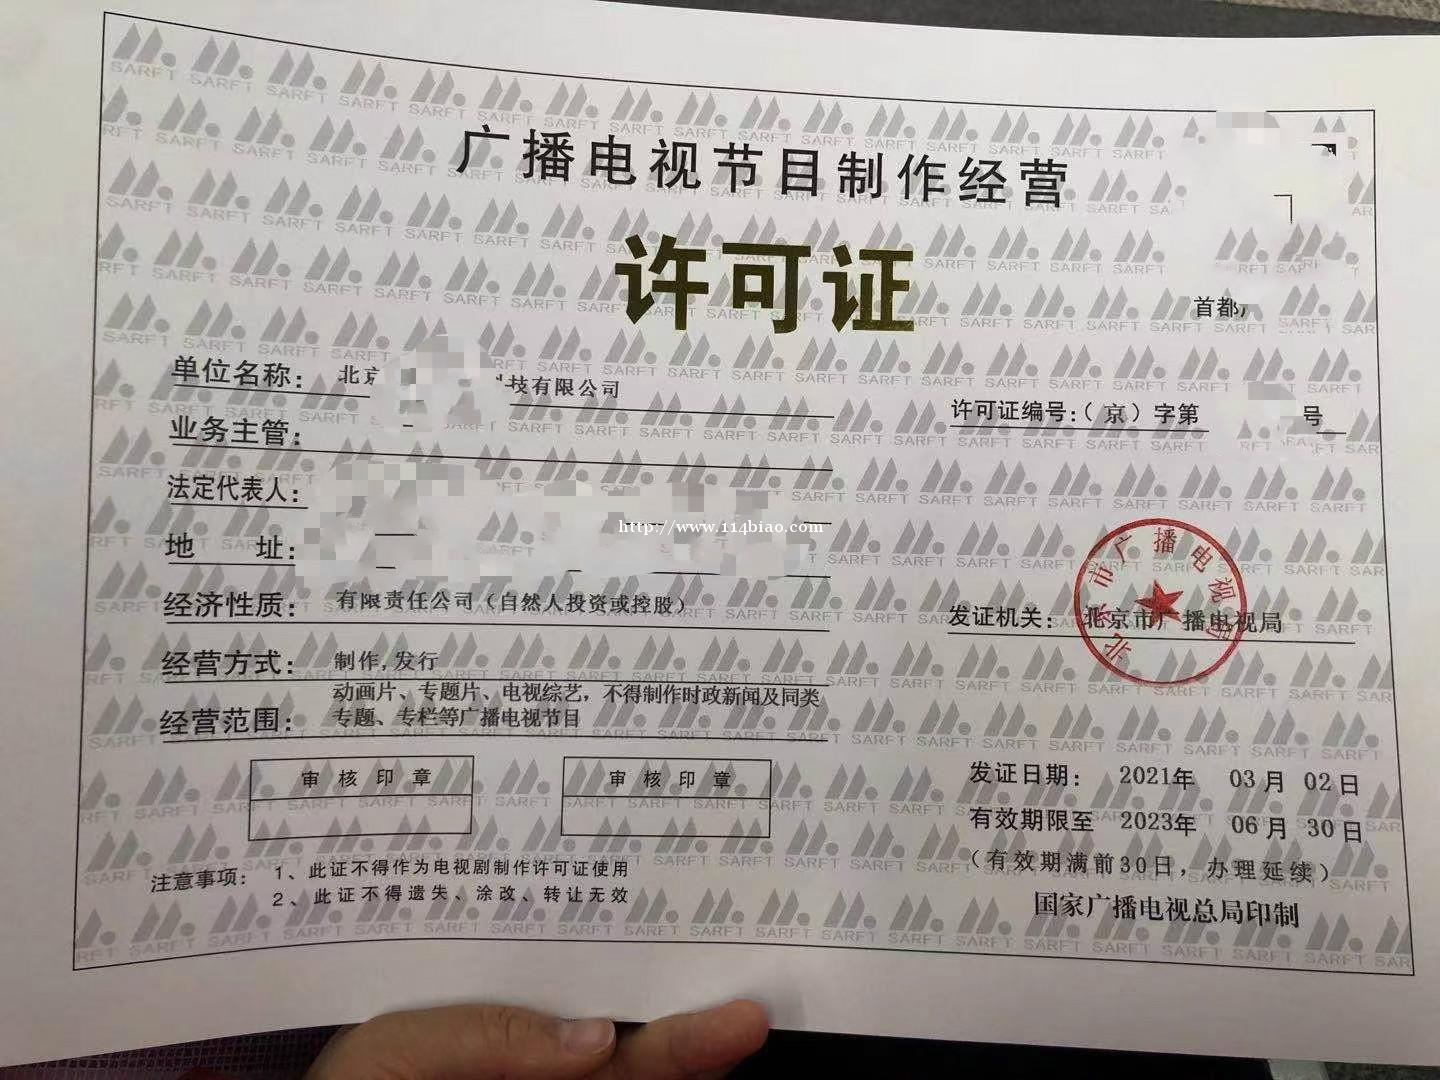 广播电视节目制作经营
许可证
首都
单位名称： 北京 科技有限公司
许可证编号：（京）字第 号
业务主管：
法定代表人：
http://www.114biao.com
地 址：
经济性质： 有限责任公司（自然人投资或控股）
发证机关： 北京市广播电视局
北京市广播电视局
经营方式： 制作,发行
经营范围： 动画片、专题片、电视综艺，不得制作时政新闻及同类
专题、专栏等广播电视节目
审核印章 审核印章
发证日期： 2021年 03月 02日
有效期限至 2023年 06月 30日
（有效期满前30日，办理延续）
注意事项： 1、此证不得作为电视剧制作许可证使用
2、此证不得遗失、涂改、转让无效
国家广播电视总局印制
SARFT